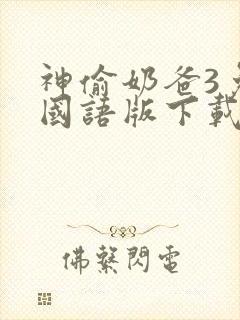 神偷奶爸3
國語版下載
佛系閃電